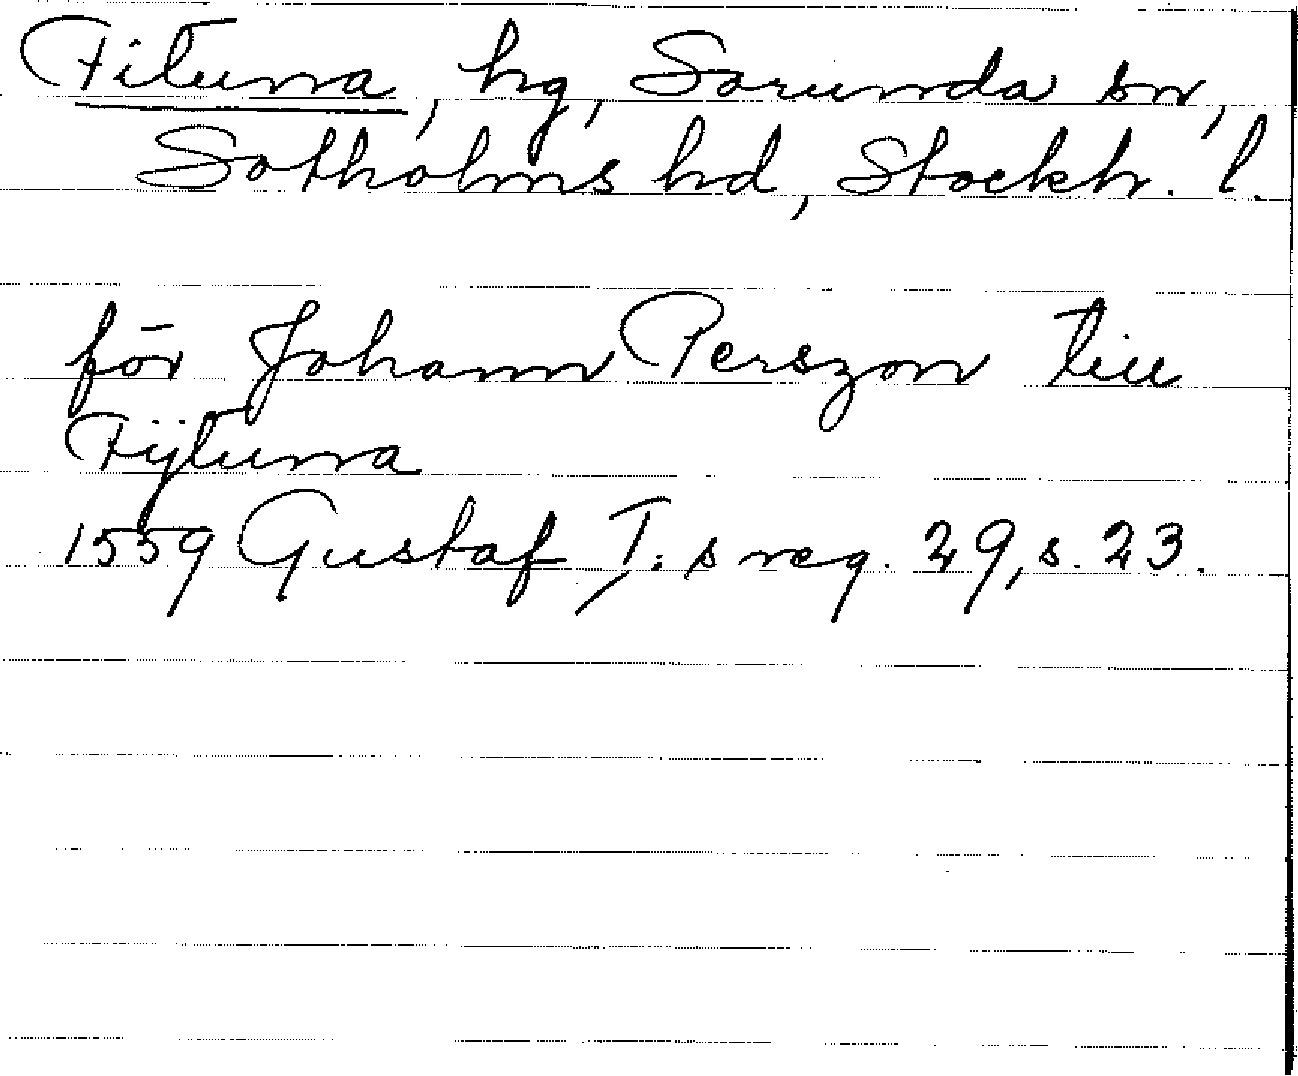 Fituna, hg, Sorunda sn,
Sotholms hd, Stockh. l.
för Johann Perszon till
Fijtuna
1559 Gustaf I:s reg. 29, s. 23.